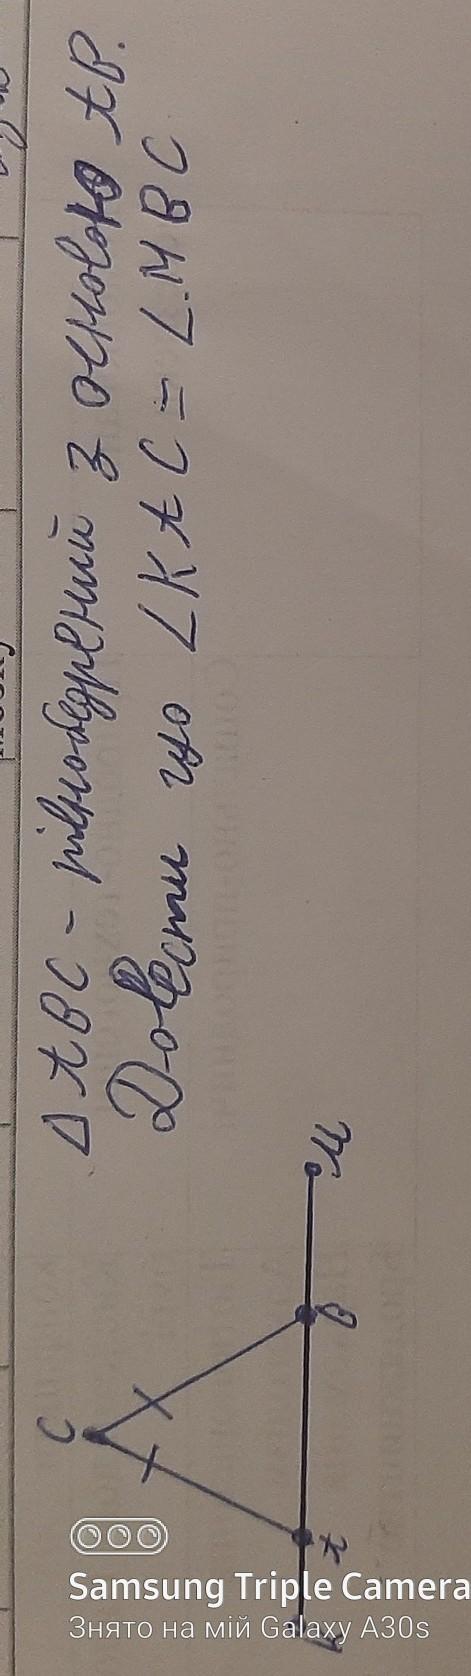 Δ ABC - рівнобедрений з основою AB.
Довести що ∠KAC = ∠MBC
C
K
A
B
M
Samsung Triple Camera
Знято на мій Galaxy A30s